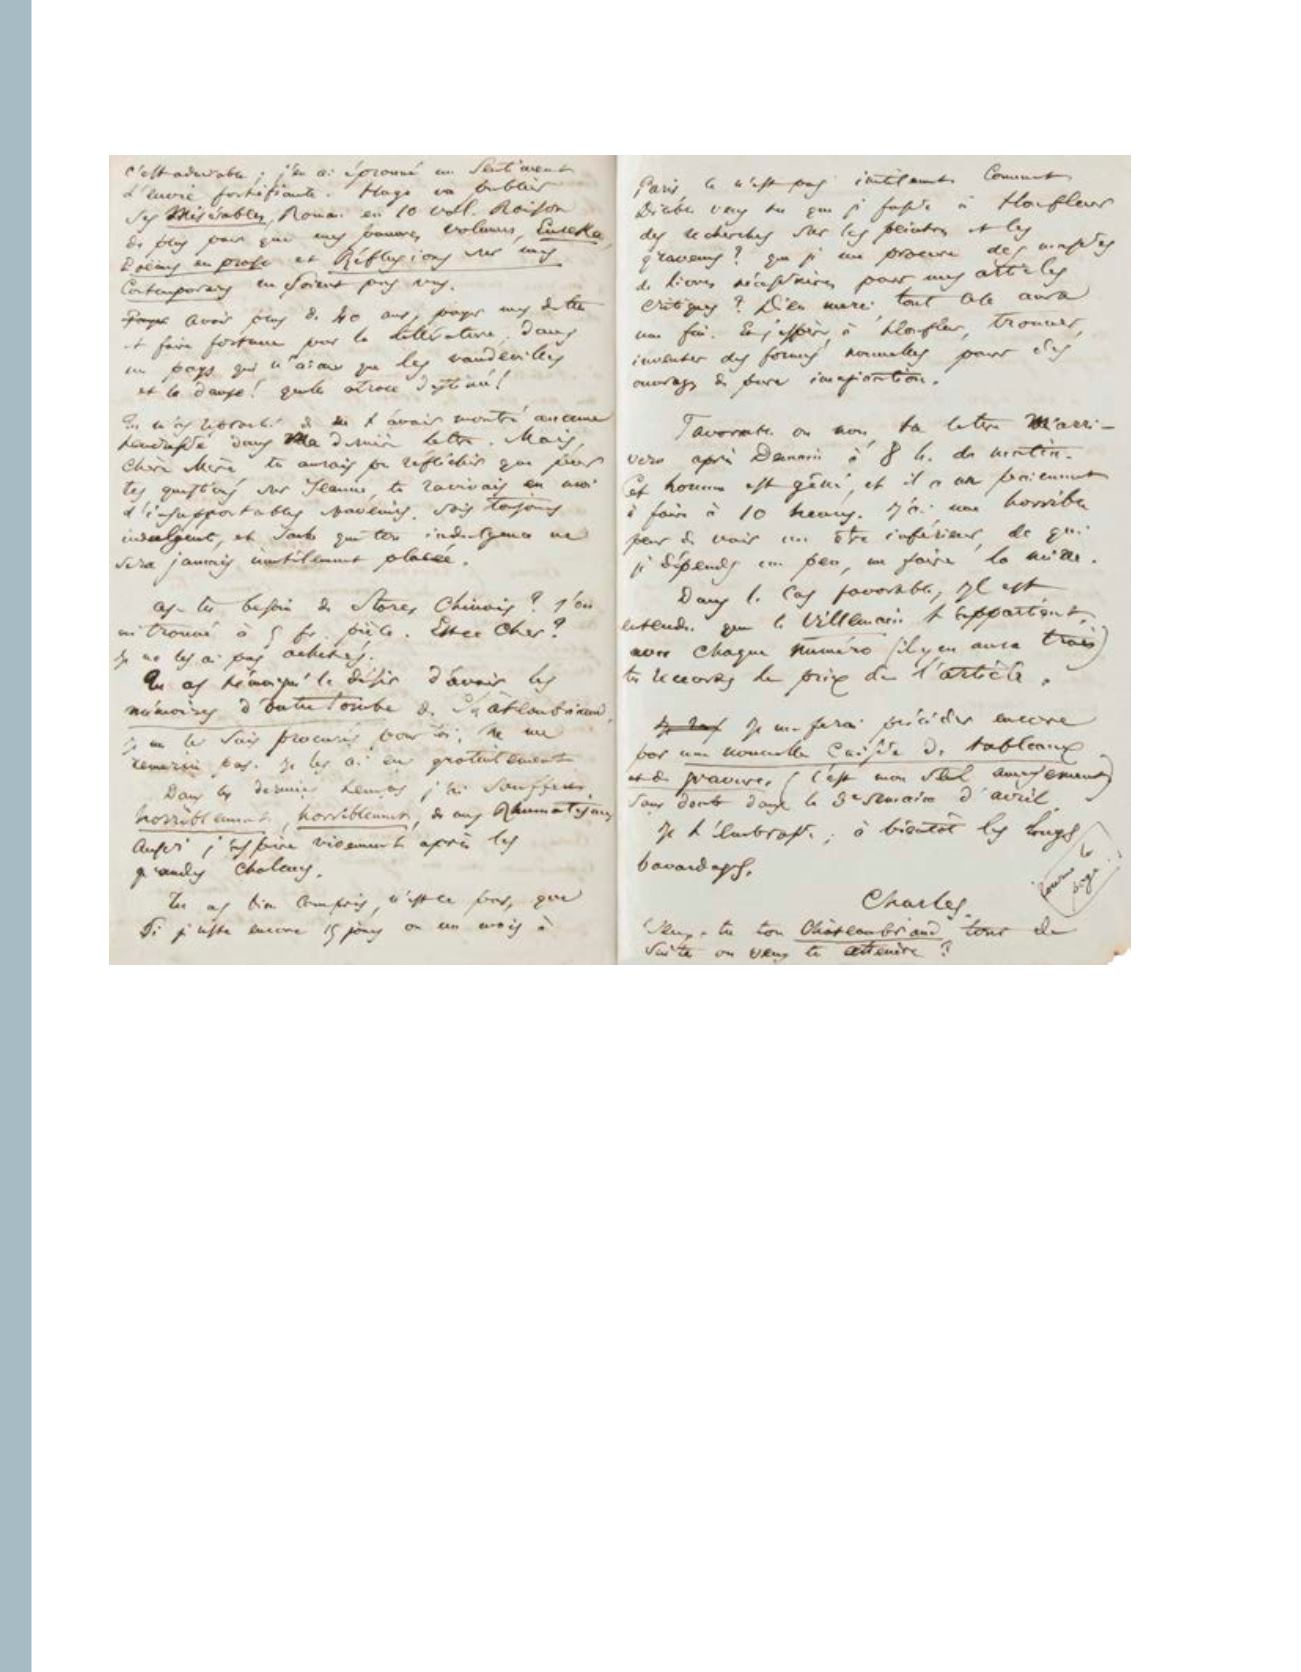 c'est admirable ; j'en ai éprouvé un sentiment
d'envie fortifiante. Hugo va publier
ses Misérables, Roman en 10 vol. Raison
de plus pour que mes pauvres volumes, Eureka,
Poèmes en prose et Réflexions sur mes
Contemporains ne soient pas vus.
Payer avoir plus de 40 ans, payer mes dettes
et faire fortune par la littérature, dans
un pays qui n'aime que les vaudevilles
et la danse ! quelle atroce destinée !
Tu m'as reproché de ne t'avoir montré aucune
tendresse dans ma dernière lettre. Mais,
chère Mère tu aurais pu réfléchir que par
tes questions sur Jeanne, tu ravivais en moi
d'insupportables souvenirs. Sois toujours
indulgente, et sache que ton indulgence ne
sera jamais inutilement placée.
as-tu besoin de Stores Chinois ? J'en
ai trouvé à 5 fr. pièce. Est-ce cher ?
Je ne les ai pas achetés.
Tu as témoigné le désir d'avoir les
mémoires d'outre Tombe de Châteaubriand,
je me les suis procurés pour toi ; ne me
remercie pas. Je les ai eu gratuitement
Dans les derniers temps j'ai souffert,
horriblement, horriblement, de mes Rhumatismes
Aussi j'aspire vivement après les
grandes chaleurs.
Tu as bien compris, n'est-ce pas, que
Si je reste encore 15 jours ou un mois à
Paris ce n'est pas inutilement. Comment
Diable veux tu que je fasse à Honfleur
des recherches sur les peintres et les
graveurs ? que je me procure des masses
de livres nécessaires pour mes articles
critiques ? Dieu merci, tout cela aura
une fin. Et j'espère, à Honfleur, trouver,
inventer des formes nouvelles pour des
ouvrages de pure imagination.
Favorable ou non, ta lettre m'arri-
vera après Demain à 8 h. du matin.
Cet homme est gêné, et il a un paiement
à faire à 10 heures. J'ai une horrible
peur de voir un être inférieur, de qui
je dépends un peu, me faire la mine.
Dans le cas favorable, il est
entendu que le Villemain t'appartient,
avec chaque numéro (il y en aura trois)
tu recevras le prix de l'article.
Je me ferai précéder encore
par une nouvelle Caisse de tableaux
et de gravures, (c'est mon seul amusement)
sans doute dans la 3e semaine d'avril.
Je t'embrasse ; à bientôt les longs
bavardages.
Charles.
Tourne la page
Veux-tu ton Châteaubriand tout de
suite ou veux tu attendre ?